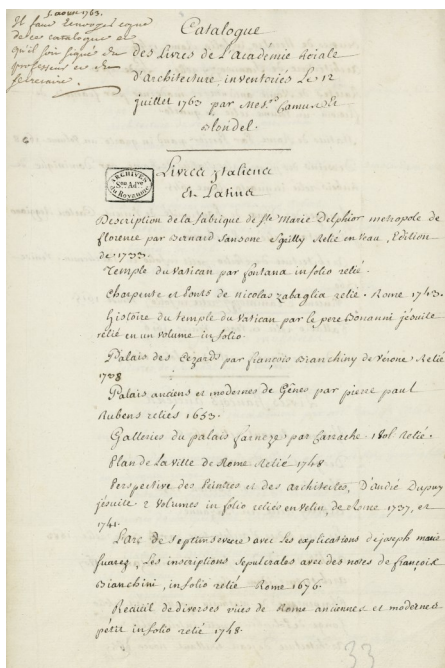 1. aoust 1763.
Il faut renvoyer copie
de ce catalogue et
qu'il soit signé du
professeur et du
secretaire.
Catalogue
des Livres de L'académie Roiale
d'architecture inventoriés Le 12
juillet 1763 par Mes.rs Camus et
Blondel.
Livres italiens
et Latins
ARCHIVES
Son Ad.ve
du Royaume
Description de la fabrique de Ste Marie Delphior metropole de
florence par Bernard Sansone Sguilly Relié en veau, Edition
de 1733.
Temple du vatican par fontana in folio relié.
Charpente et Ponts de nicolas zabaglia relié. Rome 1743.
Histoire du temple du vatican par le pere Bonanni jésuite
relié en un volume in folio.
Palais des Cezards par françois Bianchiny de verone Relié
1738
Palais anciens et modernes de Gênes par pierre paul
Rubens reliés 1653.
Galleries du palais farneze par Carrache. 1 vol Relié.
Plan de La ville de Rome Relié 1748
Perspective des Peintres et des architectes, D'andié Dupuy
jésuite 2 volumes in folio reliés en velin, de Rome 1737, et
1741.
L'arc de Septim severe avec les explications de joseph marie
suarez, Les inscriptions sepulcrales avec des notes de françois
Bianchini, in folio relié Rome 1676.
Recueil de diverses vües de Rome anciennes et modernes
petit in folio relié 1748.
33